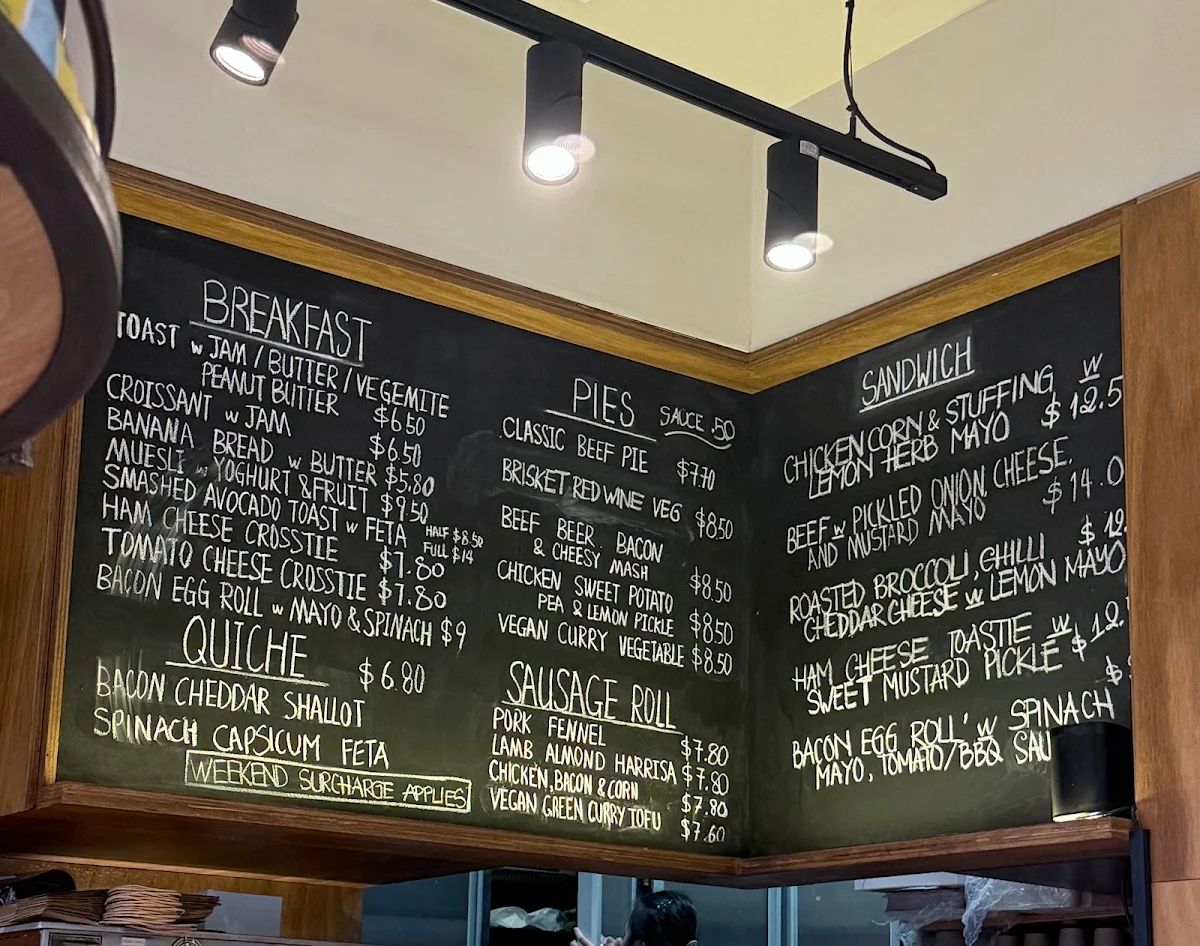 BREAKFAST
TOAST w JAM / BUTTER / VEGEMITE
PEANUT BUTTER $6.50
CROISSANT w JAM $6.50
BANANA BREAD w BUTTER $5.80
MUESLI w YOGHURT & FRUIT $9.50
SMASHED AVOCADO TOAST w FETA HALF $8.50
FULL $14
HAM CHEESE CROSSTIE $7.80
TOMATO CHEESE CROSSTIE $7.80
BACON EGG ROLL w MAYO & SPINACH $9
QUICHE $6.80
BACON CHEDDAR SHALLOT
SPINACH CAPSICUM FETA
WEEKEND SURCHARGE APPLIES
PIES SAUCE .50
CLASSIC BEEF PIE $7.70
BRISKET RED WINE VEG $8.50
BEEF BEER BACON
& CHEESY MASH $8.50
CHICKEN SWEET POTATO
PEA & LEMON PICKLE $8.50
VEGAN CURRY VEGETABLE $8.50
SAUSAGE ROLL
PORK FENNEL $7.80
LAMB ALMOND HARRISA $7.80
CHICKEN, BACON & CORN $7.80
VEGAN GREEN CURRY TOFU $7.60
SANDWICH
CHICKEN CORN & STUFFING w
LEMON HERB MAYO $12.5
BEEF w PICKLED ONION CHEESE,
AND MUSTARD MAYO $14.0
ROASTED BROCCOLI, CHILLI $12.
CHEDDAR CHEESE w LEMON MAYO
HAM CHEESE TOASTIE w
SWEET MUSTARD PICKLE $12.
$
BACON EGG ROLL w SPINACH
MAYO, TOMATO/BBQ SAU